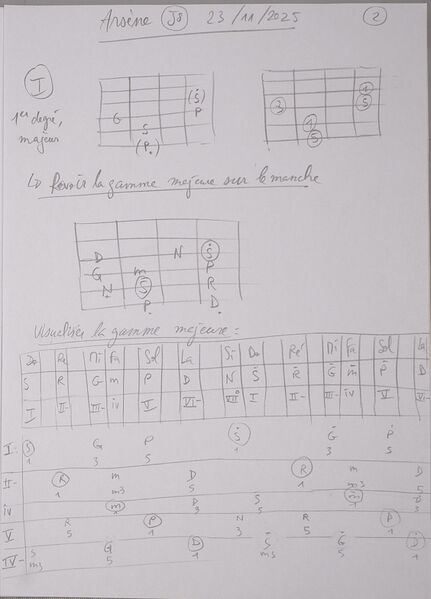 Arsène J8 23/11/2025 2
I
1er degré,
majeur
(S)
G P
S
(P.)
1
2 5
1
5
↳ Revoir la gamme majeure sur le manche
D N S
G m P
N S R
P. D.
Visualiser la gamme majeure :
Do Ré Mi Fa Sol La Si Do Ré Mi Fa Sol La
S R G m P D N S R G m P D
I II- III- iv V VI- VII° I II- III- iv V VI-
I S G P S G P
1 3 5 3 5
II- R m D R m D
1 m3 5 1 m3 5
iv m D S m D
1 3 5 1 3
V R P N R P
5 1 3 5 1
IV- S G D S G D
m3 5 1 m3 5 1